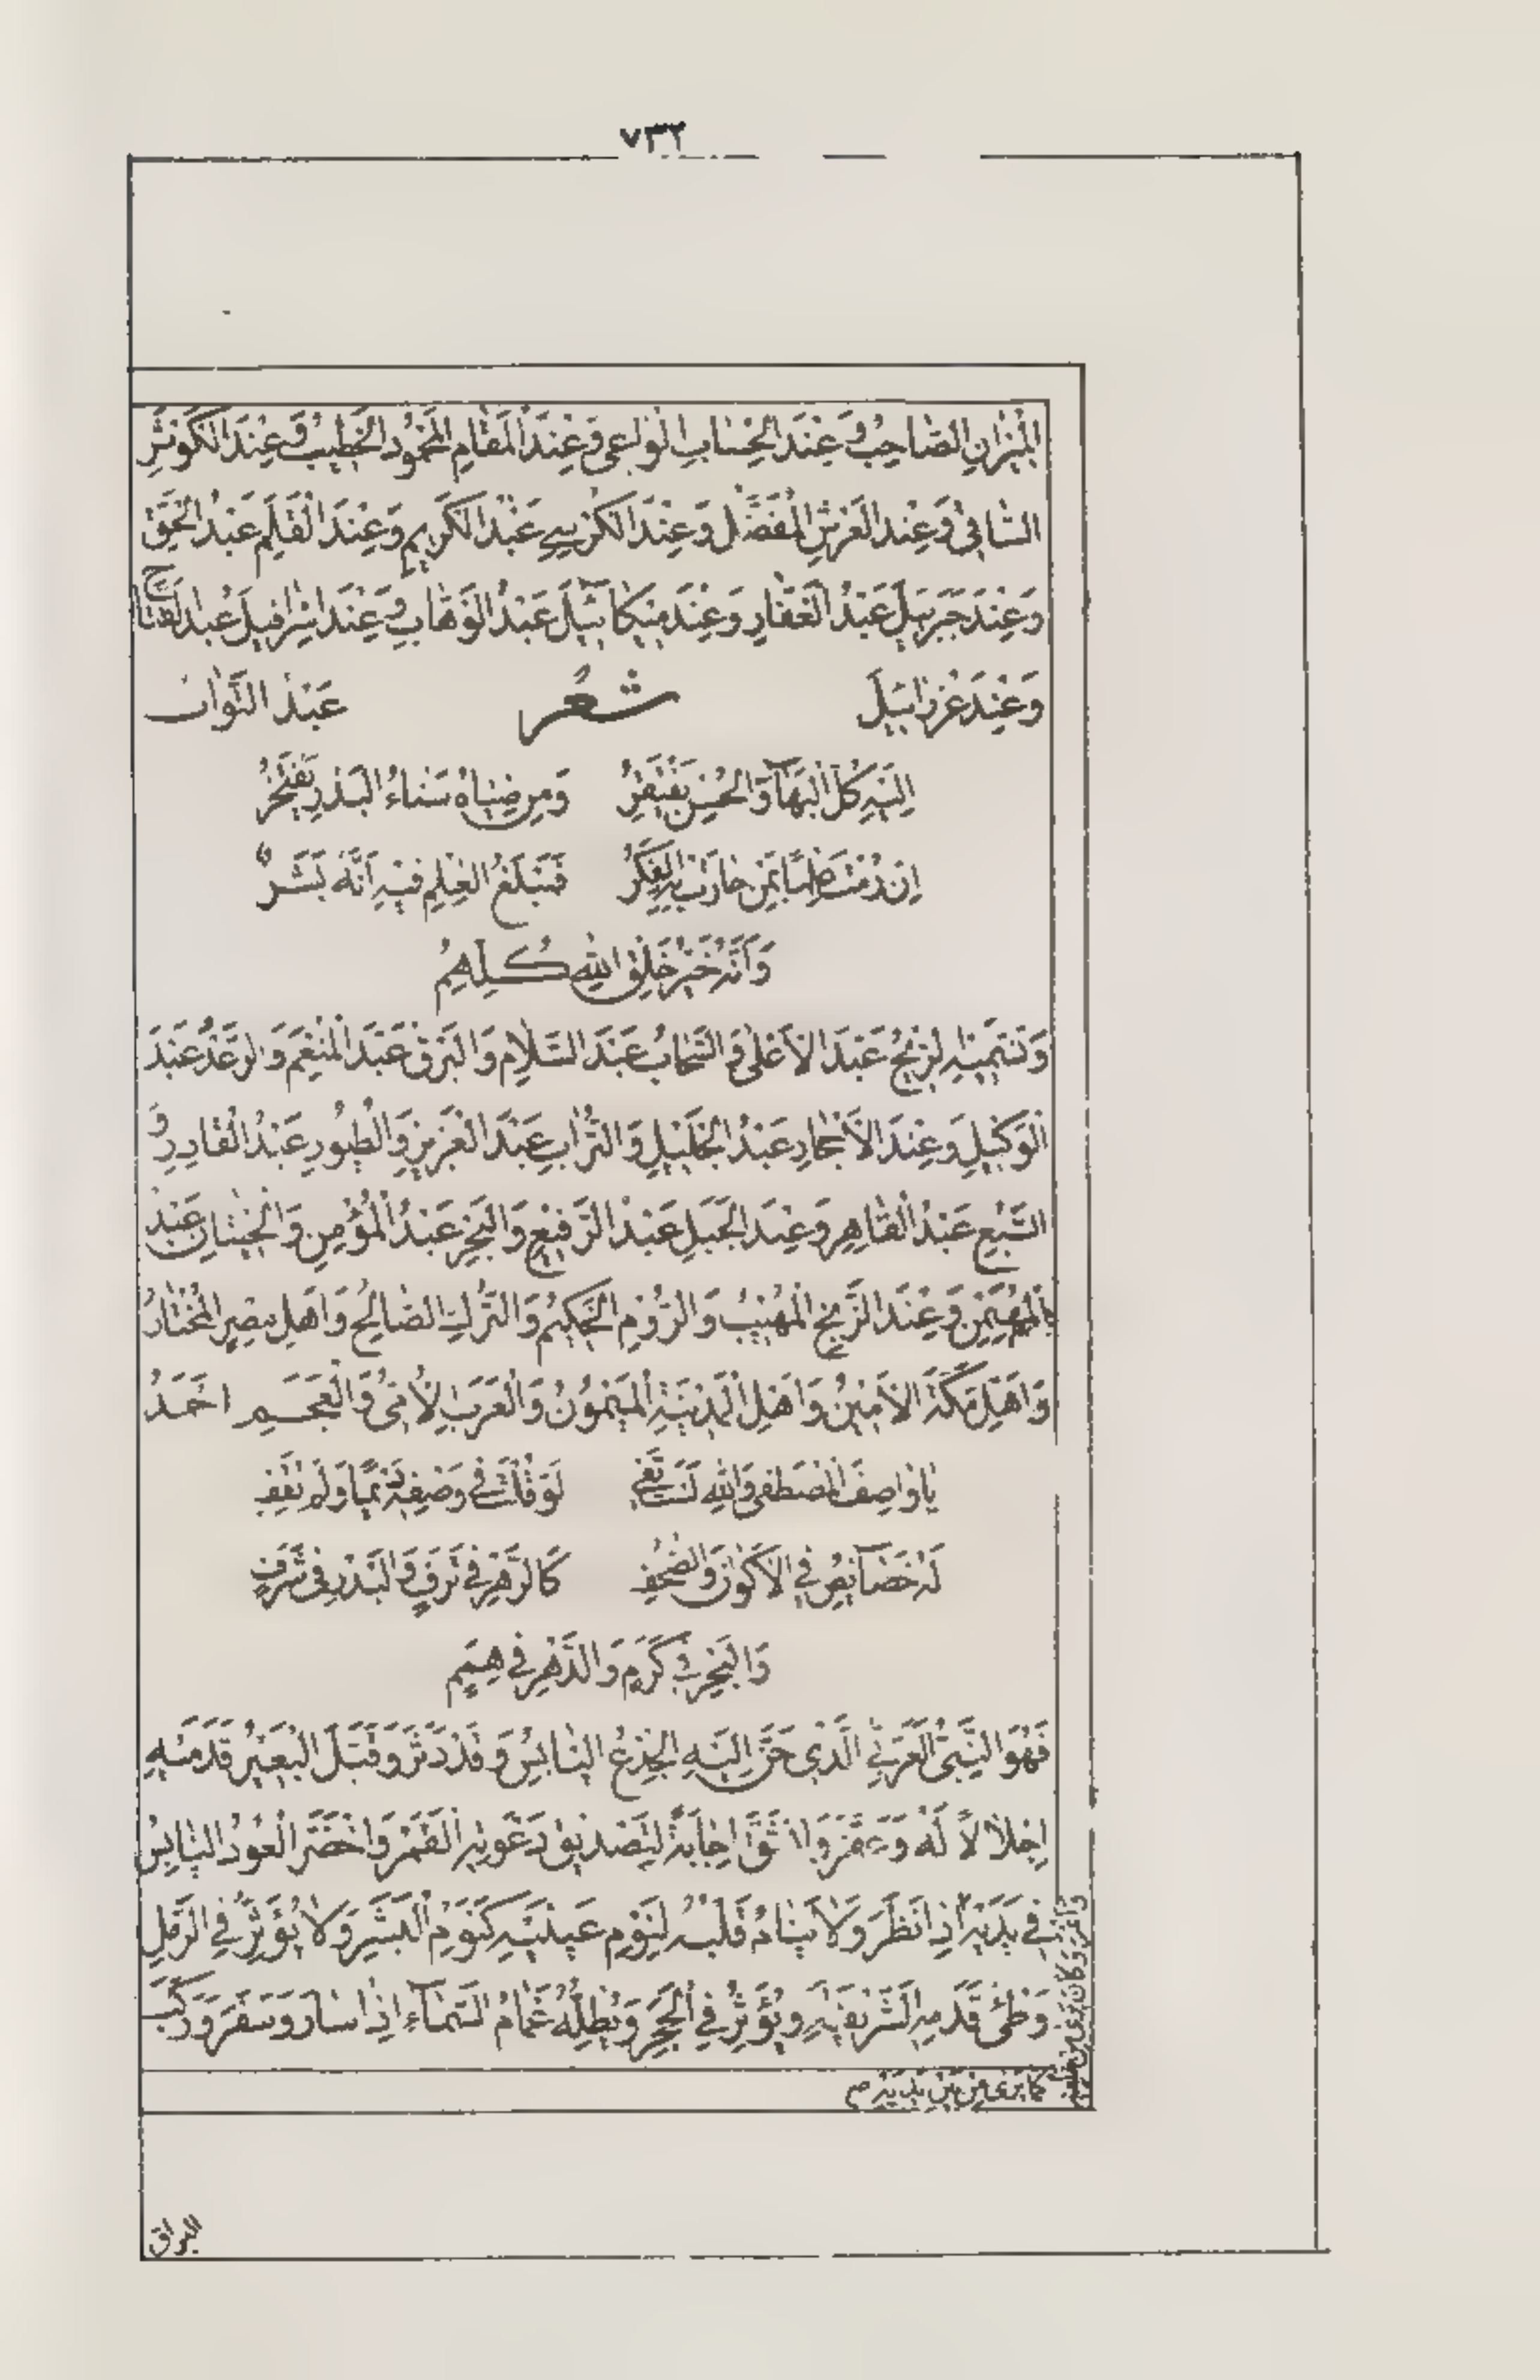 ٧٣٢
الْمِيْزَانِ الصَّاحِبُ وَ عِنْدَ الْحِسَابِ الْوَاعِى وَ عِنْدَ الْمَقَامِ الْمَحْمُوْدِ الْخَطِيْبُ وَ عِنْدَ الْكَوْثَرِ
السَّاقِىْ وَ عِنْدَ الْعَرْشِ الْمُفَضَّلُ وَ عِنْدَ الْكُرْسِىِّ عَبْدُ الْكَرِيْمِ وَ عِنْدَ الْقَلَمِ عَبْدُ الْحَقِّ
وَ عِنْدَ جَبْرَئِيْلَ عَبْدُ الْغَفَّارِ وَ عِنْدَ مِيْكَآئِيْلَ عَبْدُ الْوَهَّابِ وَ عِنْدَ اِسْرَافِيْلَ عَبْدُ الْفَتَّاحِ
وَ عِنْدَ عِزْرَائِيْلَ شعر عَبْدُ التَّوَّابِ
اِلَيْهِ كُلُّ الْبَهَآءِ وَ الْحُسْنِ يَفْتَقِرُ وَ مِنْ ضِيَاهُ سَنَاءُ الْبَدْرِ يَفْتَخِرُ
اِنْ رُمْتَ عِلْمًا بِمَنْ حَارَتْ بِهِ الْفِكَرُ فَمَبْلَغُ الْعِلْمِ فِيْهِ اَنَّهٗ بَشَرٌ
وَ اَنَّهٗ خَيْرُ خَلْقِ اللهِ كُلِّهِمُ
وَ تُسَمِّيْهِ الرِّيْحُ عَبْدَ الْاَعْلٰى وَ السَّحَابُ عَبْدَ السَّلَامِ وَ الْبَرْقُ عَبْدَ الْمُنْعِمِ وَ الرَّعْدُ عَبْدَ
الْوَكِيْلِ وَ عِنْدَ الْاَحْجَارِ عَبْدُ الْجَلِيْلِ وَ التُّرَابِ عَبْدُ الْعَزِيْزِ وَ الطُّيُوْرِ عَبْدُ الْقَادِرِ وَ
السَّبُعِ عَبْدُ الْقَاهِرِ وَ عِنْدَ الْجَبَلِ عَبْدُ الرَّفِيْعِ وَ الْبَحْرِ عَبْدُ الْمُؤْمِنِ وَ الْحِيْتَانِ عَبْدُ
الْمُهَيْمِنِ وَ عِنْدَ الزَّنْجِ الْمُهِيْبُ وَ الرُّوْمِ الْحَكِيْمُ وَ التُّرْكِ الصَّالِحُ وَ اَهْلِ مِصْرِ الْمُخْتَارُ
وَ اَهْلِ مَكَّةَ الْاَمِيْنُ وَ اَهْلِ الْمَدِيْنَةِ الْمَيْمُوْنُ وَ الْعَرَبِ الْاُمِّىُّ وَ الْعَجَمِ اَحْمَدُ
يَا وَاصِفَ الْمُصْطَفٰى وَ اللهِ لَسْتَ تَفِىْ لَوْ قُلْتَ فِىْ وَصْفِهٖ نَهْمًا وَ لَمْ تَقِفِ
لَهٗ خَصَآئِصُ فِى الْاَكْوَانِ وَ الصُّحُفِ كَالزَّهْرِ فِىْ تَرَفٍ وَ الْبَدْرِ فِىْ شَرَفٍ
وَ الْبَحْرِ فِىْ كَرَمٍ وَ الدَّهْرِ فِىْ هِمَمٍ
فَهُوَ النَّبِىُّ الْعَرَبِىُّ الَّذِىْ حَنَّ اِلَيْهِ الْجِذْعُ الْيَابِسُ وَ قَدْ دَثَرَ وَ قَبَّلَ الْبَعِيْرُ قَدَمَيْهِ
اِجْلَالًا لَهٗ وَ عَفَّرَ وَ انْشَقَّ اِجَابَةً لِتَصْدِيْقِ دَعْوَتِهِ الْقَمَرُ وَ اخْضَرَّ الْعُوْدُ الْيَابِسُ
فِىْ يَدَيْهِ اِذَا نَظَرَ وَ لَا يَنَامُ قَلْبُهٗ لِنَوْمِ عَيْنَيْهِ كَنَوْمِ الْبَشَرِ وَ لَا يُؤَثِّرُ فِى الرَّمْلِ
وَطْئُ قَدَمِهِ الشَّرِيْفَةِ وَ يُؤَثِّرُ فِى الْحَجَرِ وَ تُظِلُّهٗ غَمَامُ السَّمَآءِ اِذَا سَارَ وَ سَفَرَ وَ رَكِبَ
وَ اَثْمَرَ وَ كَانَ يَرٰى مِنْ خَلْفِهٖ
كَمَا يَرٰى مِنْ بَيْنِ يَدَيْهِ صح
البراق